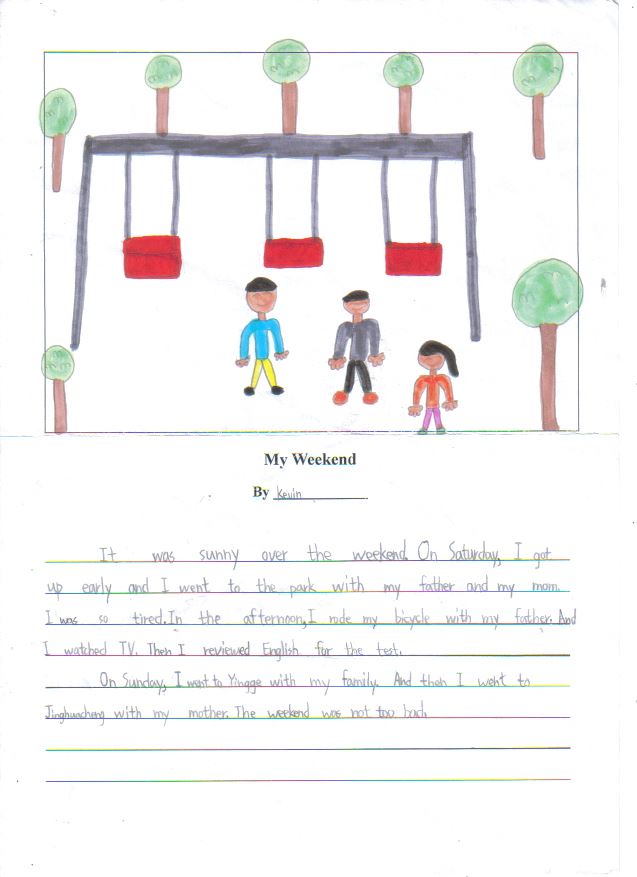 My Weekend
By Kevin
It was sunny over the weekend. On Saturday, I got
up early and I went to the park with my father and my mom.
I was so tired. In the afternoon, I rode my bicycle with my father. And
I watched TV. Then I reviewed English for the test.
On Sunday, I went to Yingge with my family. And then I went to
Jinghuacheng with my mother. The weekend was not too bad.